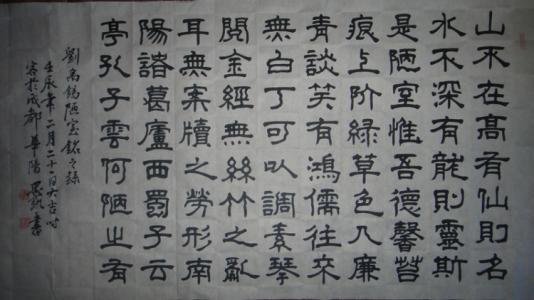 山不在高有仙則名
水不深有龍則靈斯
是陋室惟吾德馨苔
痕上阶緑草色入廉
青談笑有鴻儒往來
無白丁可以調素琴
閱金經無絲竹之亂
耳無案牘之勞形南
陽諸葛廬西蜀子云
亭孔子雲何陋之有
劉禹锡陋室銘之録
壬辰年二月二十二日
客於成都華陽書